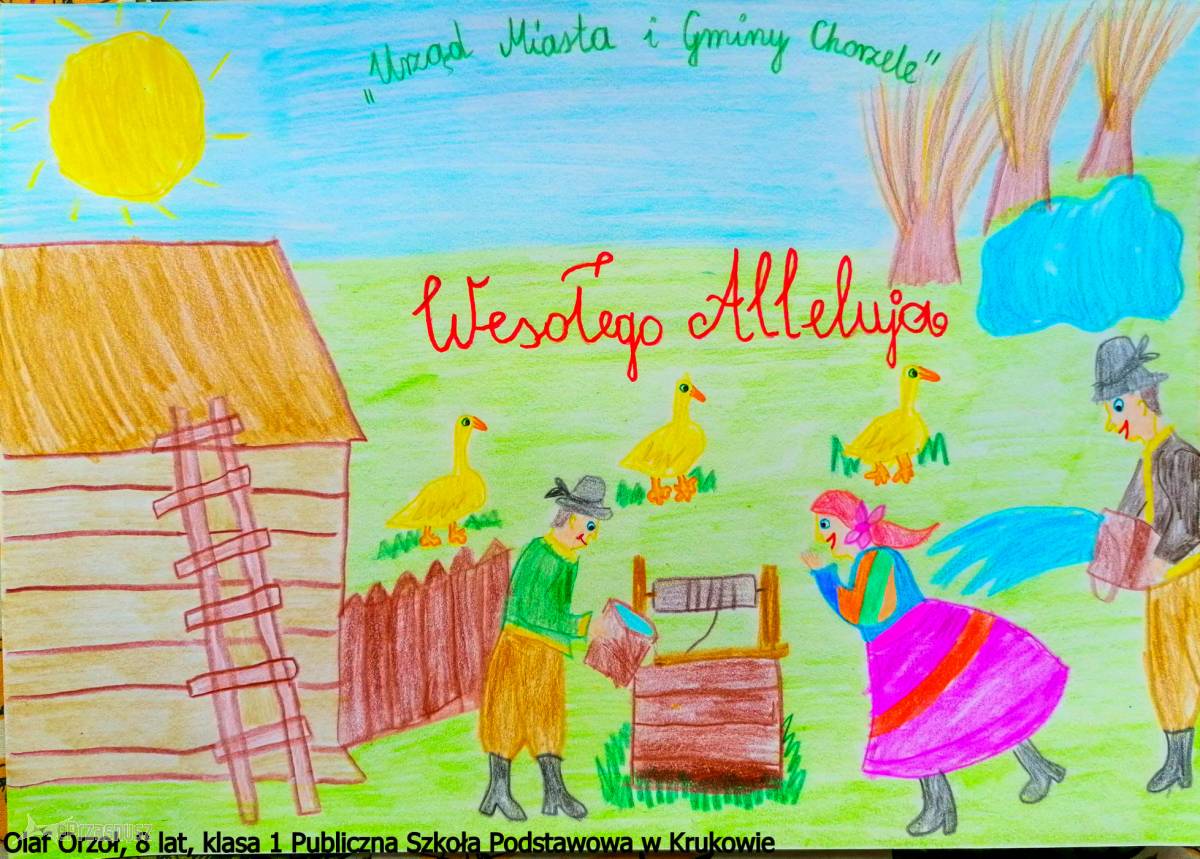 „Urząd Miasta i Gminy Chorzele"
Wesołego Alleluja
Olaf Orzoł, 8 lat, klasa 1 Publiczna Szkoła Podstawowa w Krukowie